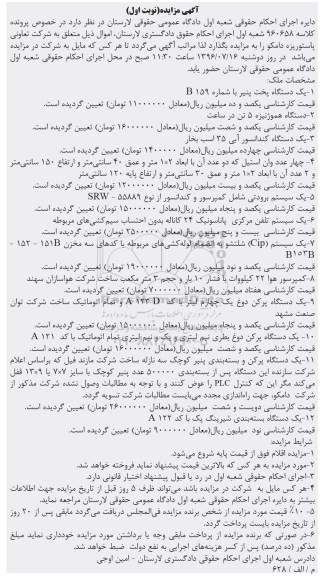 آگهی مزایده(نوبت اول)
دایره اجرای احکام حقوقی شعبه اول دادگاه عمومی حقوقی لارستان در نظر دارد در خصوص پرونده
کلاسه ۹۶۰۶۵۸ شعبه اول اجرای احکام حقوق دادگستری لارستان، اموال ذیل متعلق به شرکت تعاونی
پاستوریزه دامکو را به مزایده بگذارد لذا مراتب آگهی می‌گردد تا هر کس که مایل به شرکت در مزایده
می‌باشد در روز دوشنبه ۱۳۹۶/۰۷/۱۶ ساعت ۱۱:۳۰ صبح در محل اجرای احکام حقوقی شعبه اول
دادگاه عمومی حقوقی لارستان حضور یابد.
مشخصات ملک:
۱-یک دستگاه پخت پنیر با شماره B ۱۵۹
قیمت کارشناسی یکصد و ده میلیون ریال(معادل ۱۱۰۰۰۰۰۰ تومان) تعیین گردیده است.
۲-دستگاه هموژنیزه ۵ تن در ساعت
قیمت کارشناسی یکصد و شصت میلیون ریال(معادل ۱۶۰۰۰۰۰۰ تومان) تعیین گردیده است.
۳-یک دستگاه کندانسور آبی ۳۵ اسب بخار
قیمت کارشناسی چهارده میلیون ریال(معادل ۱۴۰۰۰۰۰ تومان) تعیین گردیده است.
۴-چهار عدد وان استیل که دو عدد آن با ابعاد ۲×۱ متر و عمق ۴۰ سانتی‌متر و ارتفاع ۱۵۰ سانتی‌متر
و ۲ عدد آن با ابعاد ۲×۱ متر و عمق ۳۰ سانتی‌متر و ارتفاع پایه ۱۲۰ سانتی‌متر
قیمت کارشناسی یکصد و بیست میلیون ریال(معادل ۱۲۰۰۰۰۰۰ تومان) تعیین گردیده است.
۵-یک سیستم برودتی شامل کمپرسور و کندانسور از نوع ۵۵۸۸۹ - SRW
قیمت کارشناسی یکصد و پنجاه میلیون ریال(معادل ۱۵۰۰۰۰۰۰ تومان) تعیین گردیده است.
۶-یک سیستم تلفن مرکزی پاناسونیک ۲۴ کاناله بدون احتساب سیم‌کشی‌های مربوطه
قیمت کارشناسی بیست و پنج میلیون ریال(معادل ۲۵۰۰۰۰۰ تومان) تعیین گردیده است.
۷-یک سیستم (Cip) شلتشو به انضمام لوله‌کشی‌های مربوطه با کدهای سه مخزن ۱۵۱B - ۱۵۲ -
B۱۵۳B
قیمت کارشناسی یکصد و نود میلیون ریال(معادل ۱۹۰۰۰۰۰۰ تومان) تعیین گردیده است.
۸-کمپرسور هوا ۲۲ کیلووات با فشار ۱۰ بار و حجم ۳ متر مکعب ساخت شرکت هواسازان سهند
قیمت کارشناسی هفتاد میلیون ریال(معادل ۷۰۰۰۰۰۰ تومان) تعیین گردیده است.
۹-یک دستگاه پرکن دوغ یک چهارم لیتر با کد A ۱۳۳ D و تمام اتوماتیک ساخت شرکت توان
صنعت مشهد
قیمت کارشناسی یکصد و پنجاه میلیون ریال(معادل ۱۵۰۰۰۰۰۰ تومان) تعیین گردیده است.
۱۰- یک دستگاه پرکن دوغ بطری نیم لیتری و یک و نیم لیتری تمام اتوماتیک با کد A ۱۲۱
قیمت کارشناسی یکصد و شصت میلیون ریال(معادل ۱۶۰۰۰۰۰۰ تومان) تعیین گردیده است.
۱۱-یک دستگاه پرکن و بسته‌بندی پنیر کوچک، سه نازله ساخت شرکت مازند فیل که براساس اعلام
شرکت سازنده این دستگاه پس از بسته‌بندی ۵۰۰۰۰۰ عدد پنیر کوچک با سایز ۷۰۷ یا ۱۳۰۹ قفل
می‌کند مگر این که کنترل PLC را عوض کنند و با توجه به مطالبات وصول نشده شرکت مذکور از
شرکت دامکو، جهت راه‌اندازی مجدد می‌بایست مطالبات شرکت تسویه گردد.
قیمت کارشناسی دویست و شصت میلیون ریال(معادل ۲۶۰۰۰۰۰۰ تومان) تعیین گردیده است.
۱۲-یک دستگاه بسته‌بندی شیرینگ پک با کد A ۱۲۲
قیمت کارشناسی نود میلیون ریال(معادل ۹۰۰۰۰۰۰ تومان) تعیین گردیده است.
شرایط مزایده:
۱-مزایده اقلام فوق از قیمت پایه شروع می‌شود.
۲-مورد مزایده به هر کس که بالاترین قیمت پیشنهاد نماید فروخته خواهد شد.
۳-اجرای احکام حقوقی شعبه اول در رد یا قبول پیشنهاد اختیار قانونی دارد.
۴-هر کس مایل به شرکت در مزایده باشد می‌تواند ظرف ۵ روز قبل از تاریخ مزایده جهت اطلاعات
بیشتر به دایره اجرای احکام حقوقی شعبه اول دادگاه عمومی حقوقی لارستان مراجعه نماید.
۵- ۱۰٪ قیمت مورد مزایده از شخص برنده مزایده فی‌المجلس دریافت می‌گردد مابقی پس از ۲۰ روز
از تاریخ مزایده بایست پرداخت گردد.
۶-در صورتی که برنده مزایده از پرداخت مابقی وجه یا برداشتن مورد مزایده خودداری نماید مبلغ
مذکور (ده درصد) پس از کسر هزینه‌های اجرایی به نفع دولت ضبط خواهد شد.
دادرس شعبه اول اجرای احکام حقوقی دادگستری لارستان - امین اوجی
م / الف / ۶۲۸